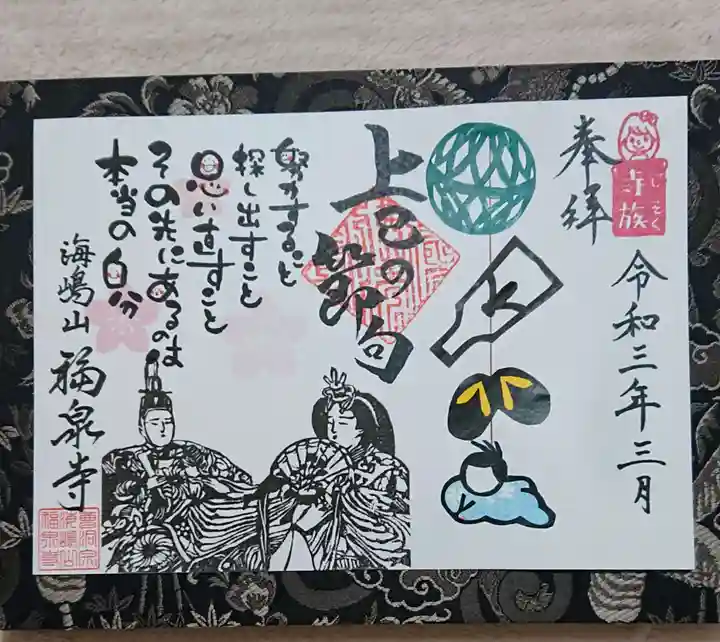 奉拝
寺族
じぞく
令和三年三月
上巳の節句
努力すること
探し出すこと
思い直すこと
その先にあるのは
本当の自分
海嶋山
福泉寺
曹洞宗
海嶋山
福泉寺